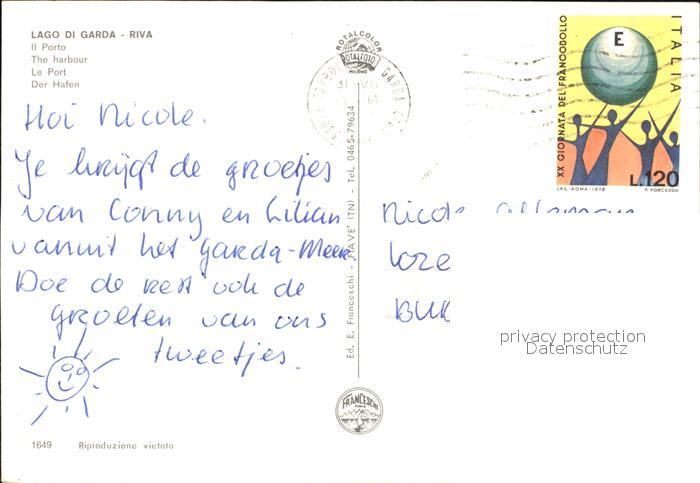 LAGO DI GARDA - RIVA
Il Porto
The harbour
Le Port
Der Hafen
Hoi Nicole.
Je krijgt de groetjes
van Conny en Lilian
vanuit het garda-Meer.
Doe de rest ook de
groeten van ons
tweetjes.
1649 Riproduzione vietata
ROTALCOLOR
ROTALFOTO
MILANO
Ed. E. Franceschi - FIAVE' (TN) - Tel. 0465-79634
FRANCESCHI
GARDA
XX GIORNATA DEL FRANCOBOLLO
E
ITALIA
L.120
I.P.S.-ROMA-1978 P. PORCEDDU
Nicole
privacy protection
Datenschutz